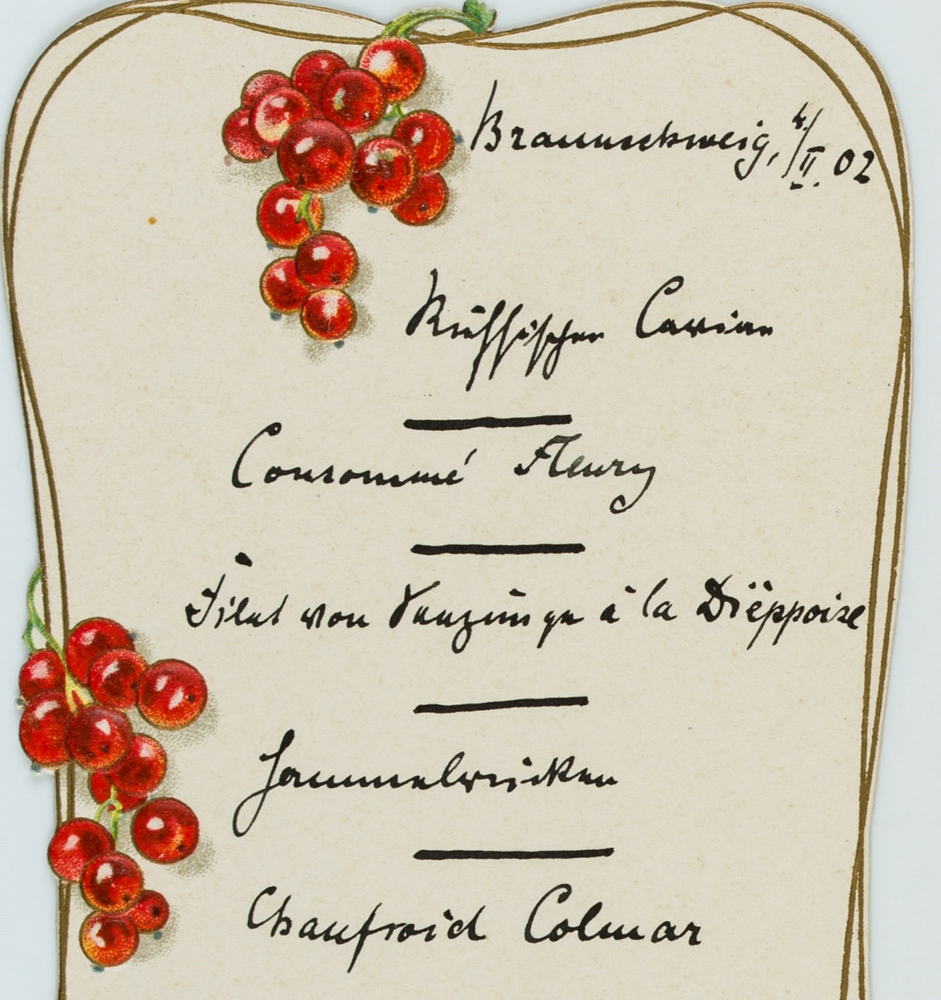 Braunschweig, 4/II. 02
Russischer Caviar
Consommé Fleury
Filet von Seezunge à la Diëppoise
Hammelrücken
Chaufroid Colmar